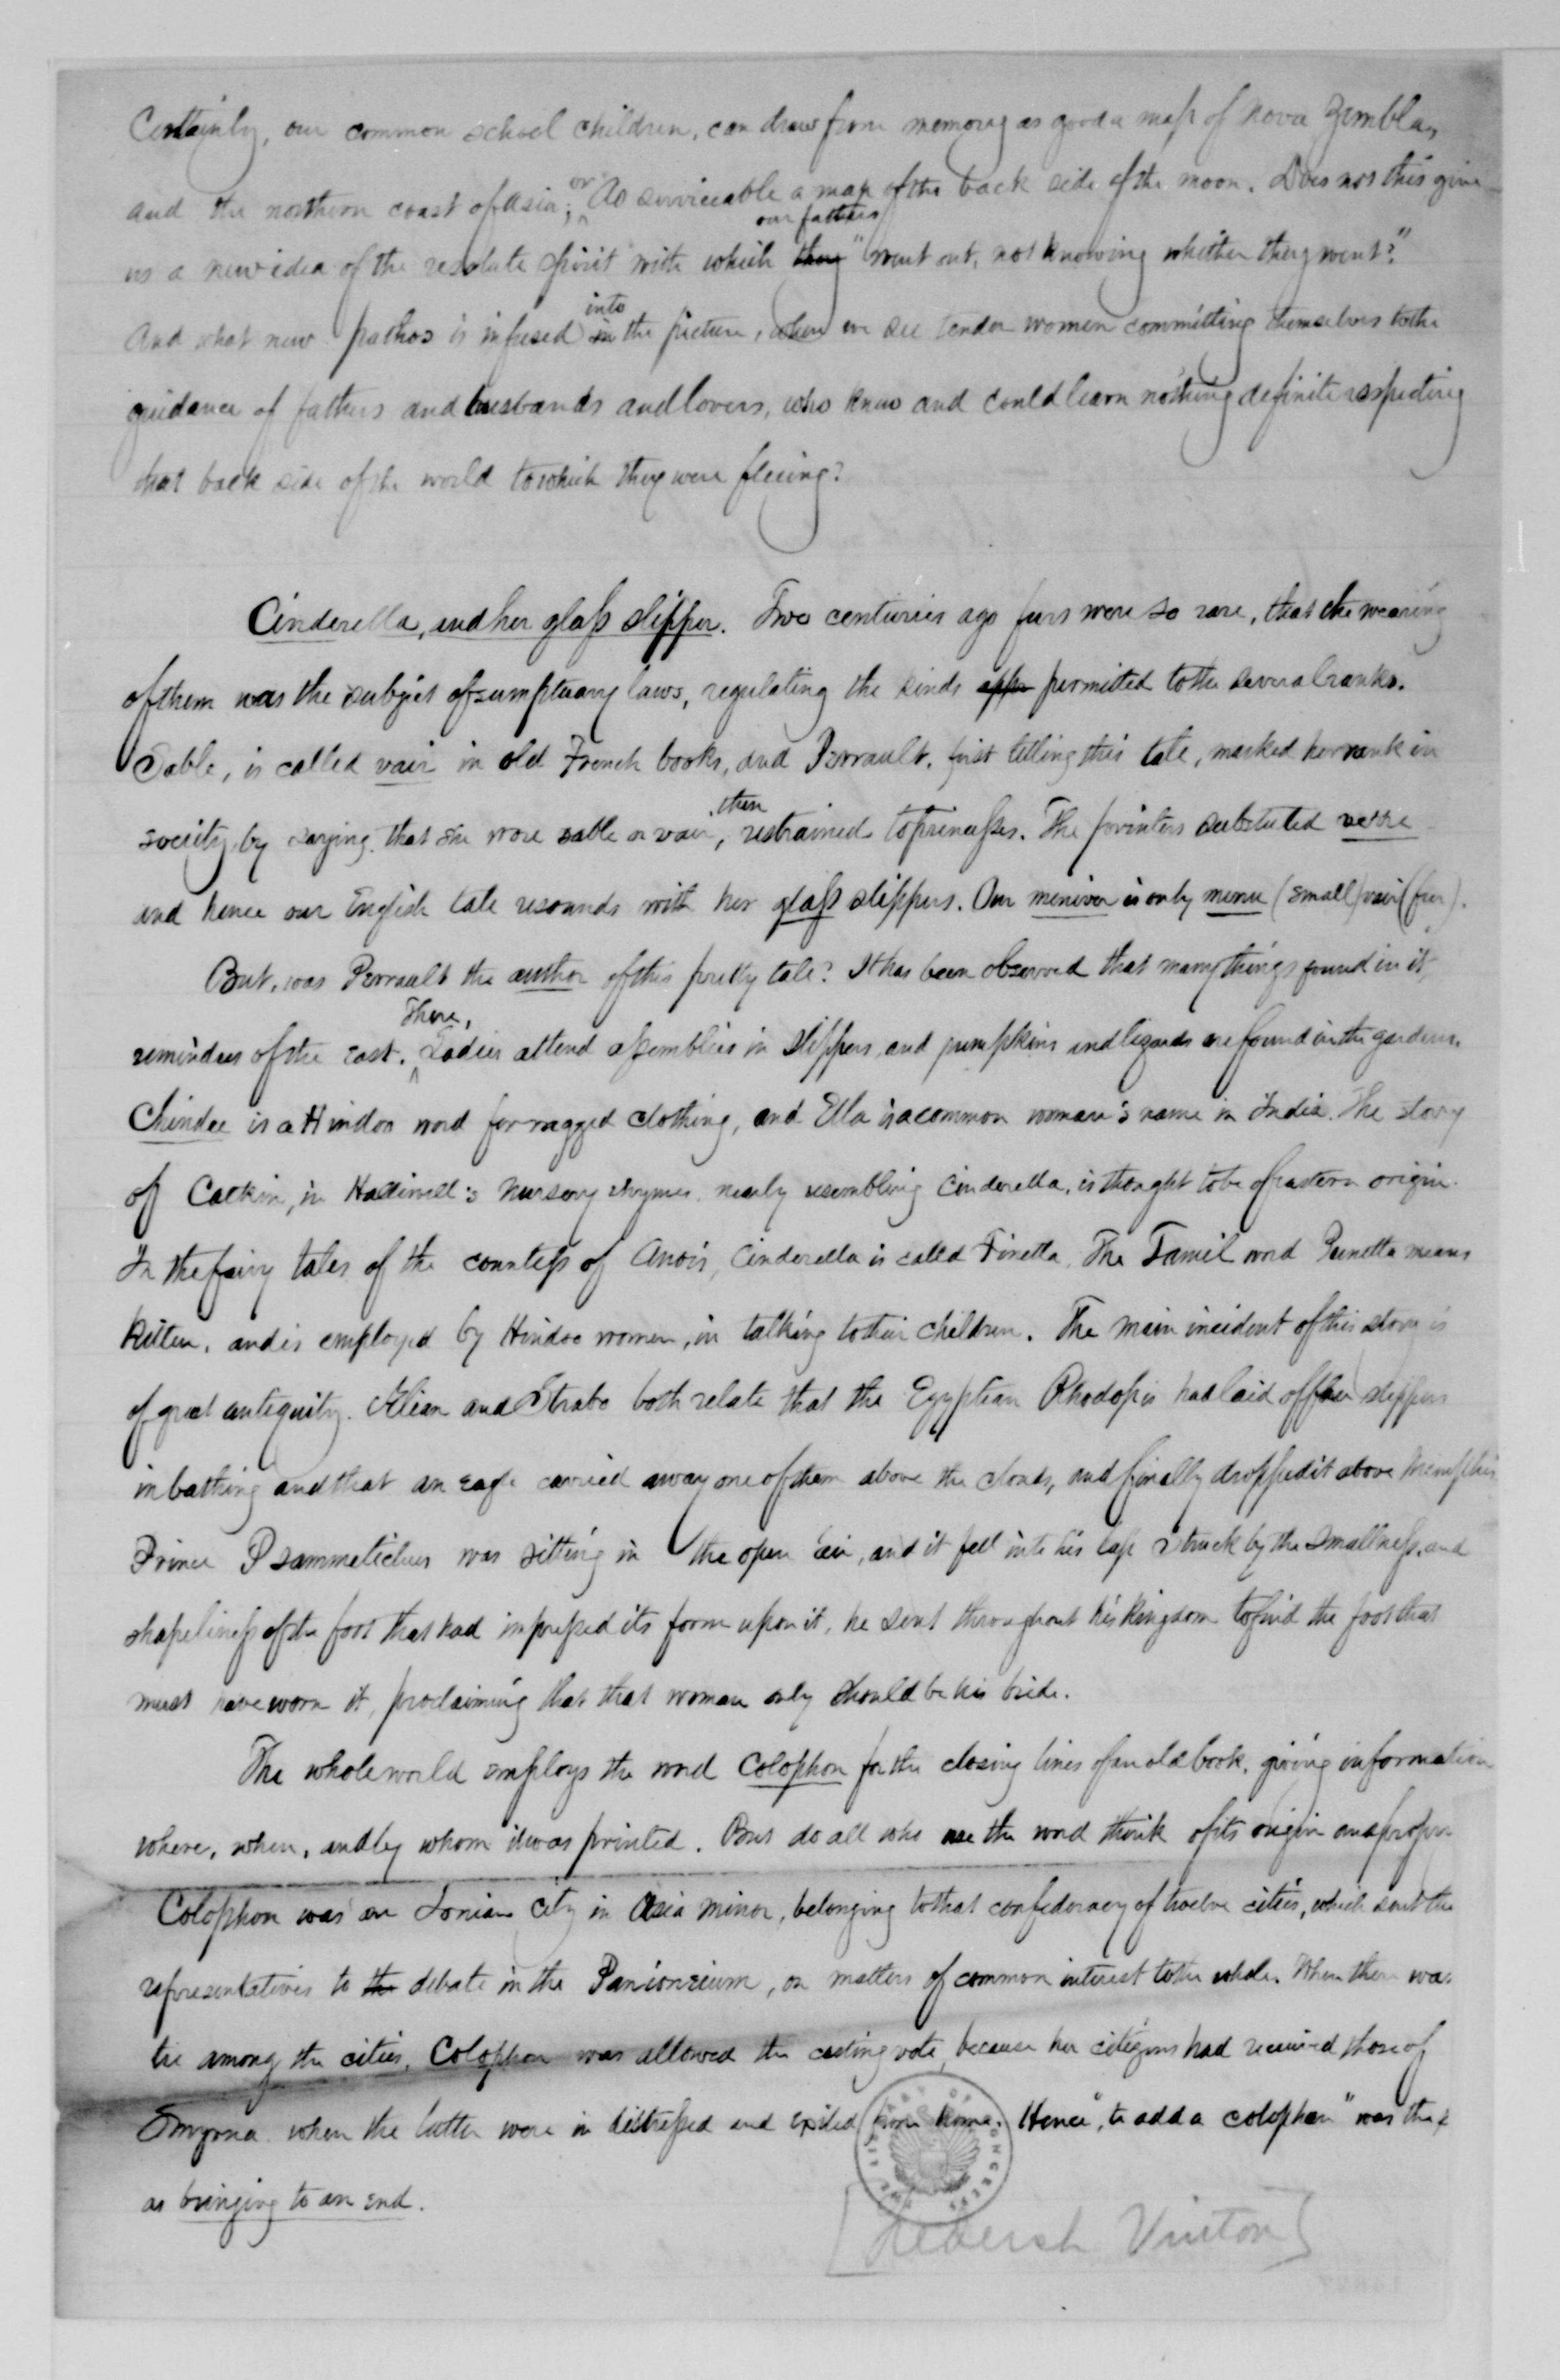 Certainly, our common school children, can draw from memory as good a map of Nova Zembla,
and the northern coast of Asia; or As serviceable a map of the back side of the moon. Does not this give
us a new idea of the resolute spirit with which they our fathers "went out, not knowing whither they went?"
And what new pathos is infused in into the picture, when we see tender women committing themselves to the
guidance of fathers and husbands and lovers, who knew and could learn nothing definite respecting
that back side of the world to which they were fleeing?
Cinderella, and her glass slipper. Two centuries ago furs were so rare, that the wearing
of them was the subject of sumptuary laws, regulating the kinds appr permitted to the several ranks.
Sable, is called vair in old French books, and Perrault, first telling this tale, marked her rank in
society, by saying that she wore sable or vair, then restrained to princesses. The printers substituted verre
and hence our English tale resounds with her glass slippers. Our meniver is only menu (small) vair (fur).
But, was Perrault the author of this pretty tale? It has been observed that many things found in it,
reminders of the east. There, Ladies attend assemblies in slippers, and pumpkins and lizards are found in the gardens.
Chindee is a Hindoo word for ragged clothing, and Ella is a common woman's name in India. The story
of Catkin, in Halliwell's nursery rhymes nearly resembling Cinderella, is thought to be of eastern origin.
In the fairy tales of the countess of Anois, Cinderella is called Finetta. The Tamil word Punetta means
kitten, and is employed by Hindoo women, in talking to their children. The main incident of this story is
of great antiquity. Ælian and Strabo both relate that the Egyptian Rhodopis had laid off her slippers
in bathing and that an eagle carried away one of them above the clouds, and finally dropped it above Memphis
Prince Psammetichus was sitting in the open air, and it fell into his lap Struck by the smallness, and
shapeliness of the foot that had impressed its form upon it, he sent throughout his kingdom to find the foot that
must have worn it, proclaiming that that woman only should be his bride.
The whole world employs the word Colophon for the closing lines of an old book, giving information
where, when, and by whom it was printed. But do all who use the word think of its origin and proper
Colophon was an Ionian city in Asia minor, belonging to that confederacy of twelve cities, which sent the
representatives to the debate in the Panionium, on matters of common interest to the whole. When there was
tie among the cities, Colophon was allowed the casting vote, because her citizens had received those of
Smyrna when the latter were in distressed and exiled from home. Hence "to add a colophon" was the
as bringing to an end.
THE LIBRARY OF CONGRESS
[ Vinton]